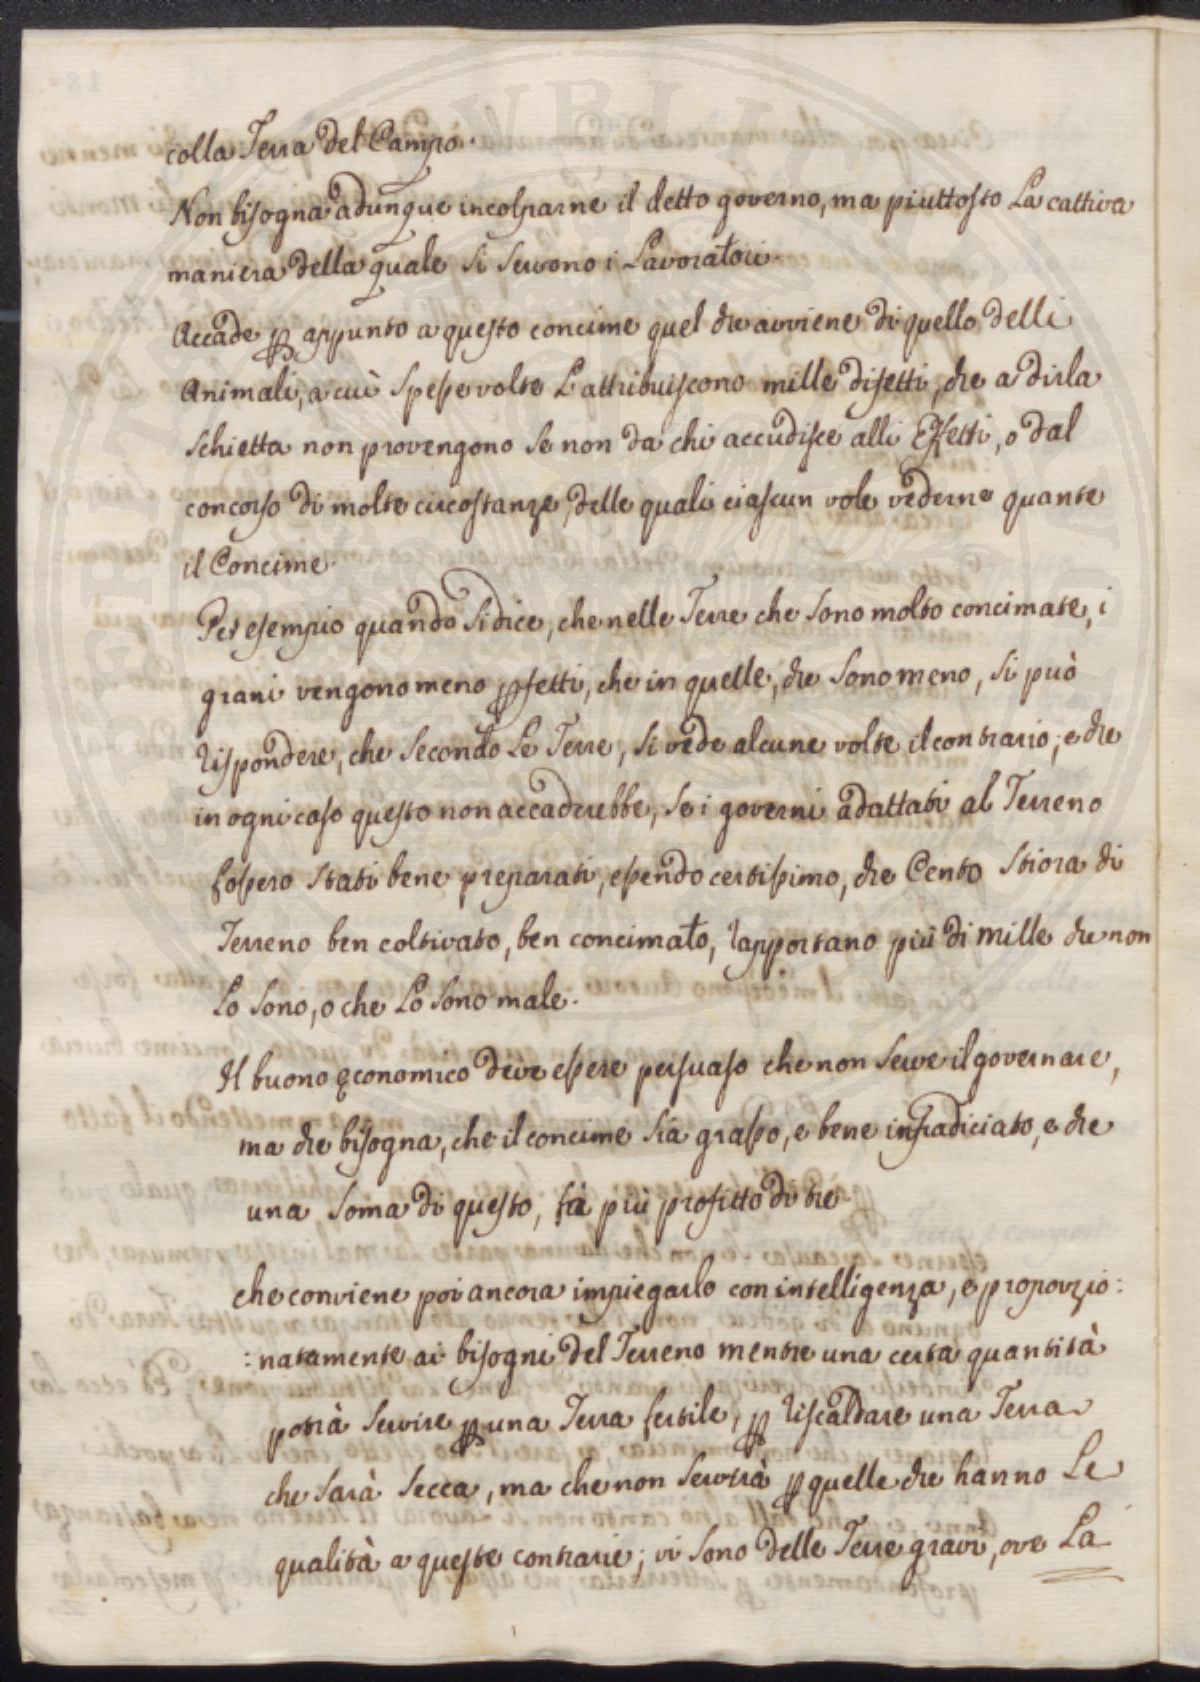 colla Terra del Campo.
Non bisogna adunque incolparne il detto governo, ma piuttosto La cattiva
maniera della quale si servono i Lavoratori.
Accade ꝑ appunto a questo concime quel che avviene di quello delli
Animali, a cui spesse volte L'attribuiscono mille difetti, che a dirla
schietta non provengono se non da chi accudisce alli Effetti, o dal
concorso di molte circostanze, delle quali ciascun vole vederne quante
il Concime.
Per esempio quando si dice, che nelle Terre che sono molto concimate, i
grani vengono meno ꝑfetti, che in quelle, che sono meno, si può
rispondere, che secondo Le Terre, si vede alcune volte il contrario; e che
in ogni caso questo non accaderebbe, se i governi adattati al Terreno
fossero stati bene preparati, essendo certissimo, che Cento stiora di
Terreno ben coltivato, ben concimato, rapportano più di mille che non
Lo sono, o che Lo sono male.
Il buono economico deve essere persuaso che non serve il governare,
ma che bisogna, che il concime sia grasso, e bene infradiciato, e che
una soma di questo, fà più profitto di tre.
che conviene poi ancora impiegarlo con intelligenza, e proporzio:
:natamente ai bisogni del Terreno mentre una certa quantità
potrà servire ꝑ una Terra fertile, ꝑ riscaldare una Terra
che sarà secca, ma che non servirà ꝑ quelle che hanno Le
qualità a queste contrarie; vi sono delle Terre gravi, ove La